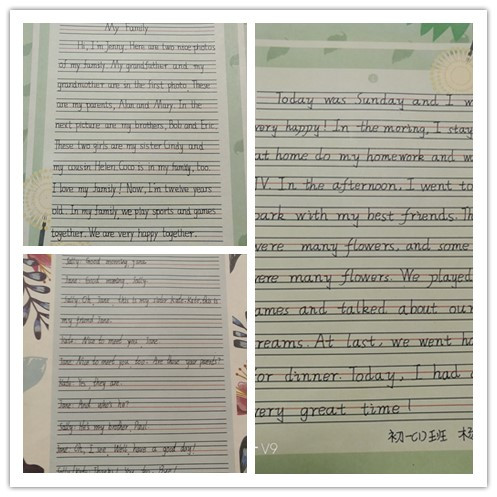 My Family
Hi, I'm Jenny. Here are two nice photos
of my family. My grandfather and my
grandmother are in the first photo. These
are my parents, Alan and Mary. In the
next picture are my brothers, Bob and Eric.
These two girls are my sister Cindy and
my cousin Helen. Coco is in my family, too.
I love my family! Now, I'm twelve years
old. In my family, we play sports and games
together. We are very happy together.
Sally: Good morning, Jane.
Jane: Good morning, Sally.
Sally: Oh, Jane this is my sister Kate. Kate, this is
my friend Jane.
Kate: Nice to meet you, Jane.
Jane: Nice to meet you, too. Are those your parents?
Kate: Yes, they are.
Jane: And who's he?
Sally: He's my brother, Paul.
Jane: Oh, I see. Well, have a good day!
Today was Sunday and I w
very happy! In the moring, I stay
at home do my homework and w
TV. In the afternoon, I went to
park with my best friends. Th
were many flowers, and some
were many flowers. We played
ames and talked about our
reams. At last, we went ho
for dinner. Today, I had a
very great time!
初一(1)班 杨
V9